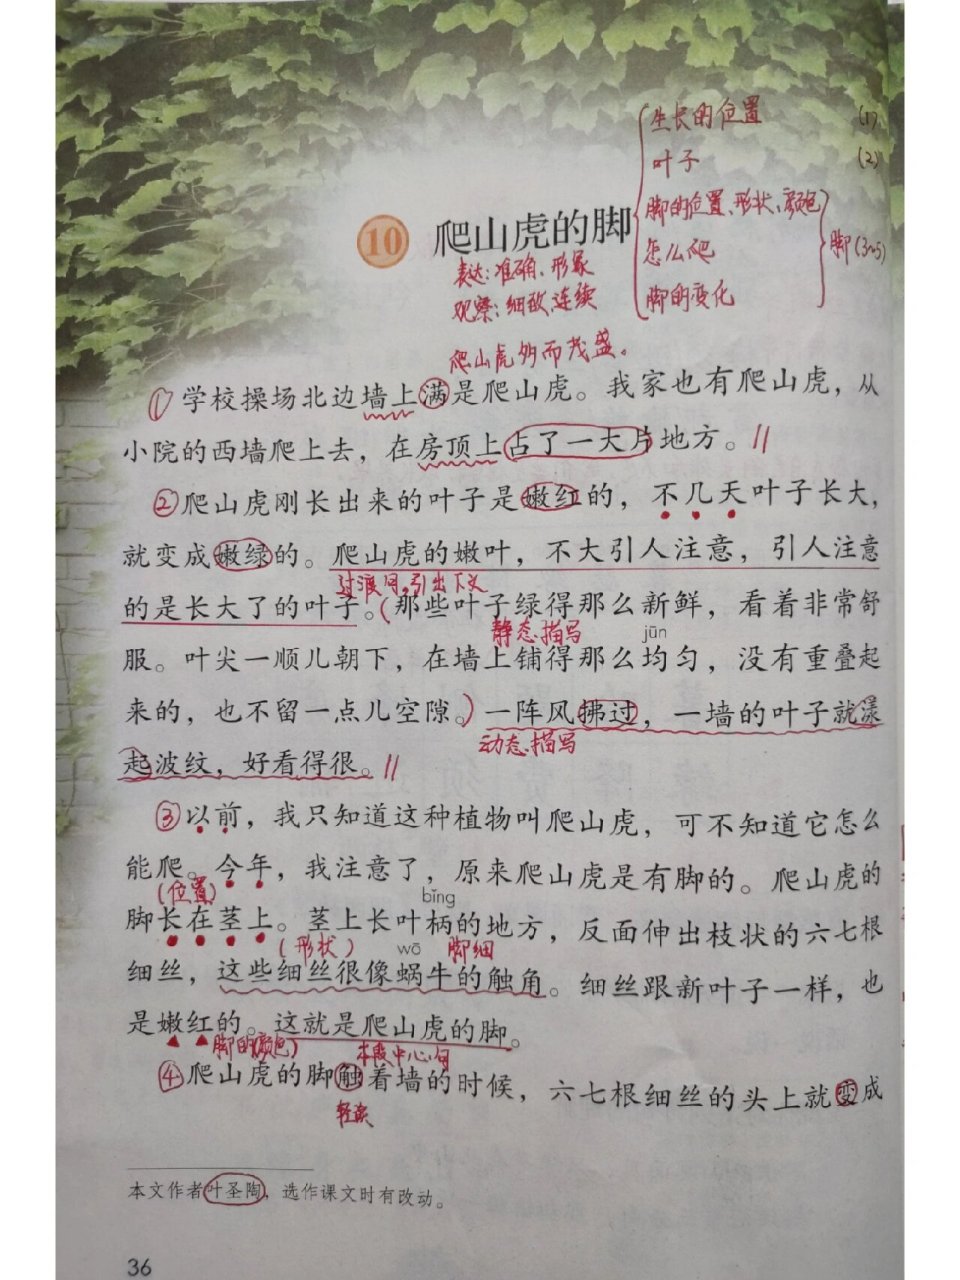 生长的位置 (1)
叶子 (2)
脚的位置、形状、颜色
10 爬山虎的脚
怎么爬 脚(3~5)
表达:准确、形象
脚的变化
观察:细致、连续
爬山虎多而茂盛。
①学校操场北边墙上满是爬山虎。我家也有爬山虎,从
小院的西墙爬上去,在房顶上占了一大片地方。
②爬山虎刚长出来的叶子是嫩红的,不几天叶子长大,
就变成嫩绿的。爬山虎的嫩叶,不大引人注意,引人注意
过渡句,引出下文
的是长大了的叶子。(那些叶子绿得那么新鲜,看着非常舒
静态描写 jūn
服。叶尖一顺儿朝下,在墙上铺得那么均匀,没有重叠起
来的,也不留一点儿空隙。)一阵风拂过,一墙的叶子就漾
动态描写
起波纹,好看得很。
③以前,我只知道这种植物叫爬山虎,可不知道它怎么
能爬。今年,我注意了,原来爬山虎是有脚的。爬山虎的
(位置) bǐng
脚长在茎上。茎上长叶柄的地方,反面伸出枝状的六七根
(形状) wō 脚细
细丝,这些细丝很像蜗牛的触角。细丝跟新叶子一样,也
是嫩红的。这就是爬山虎的脚。
脚的(颜色) 本段中心句
④爬山虎的脚触着墙的时候,六七根细丝的头上就变成
轻读
本文作者叶圣陶,选作课文时有改动。
36